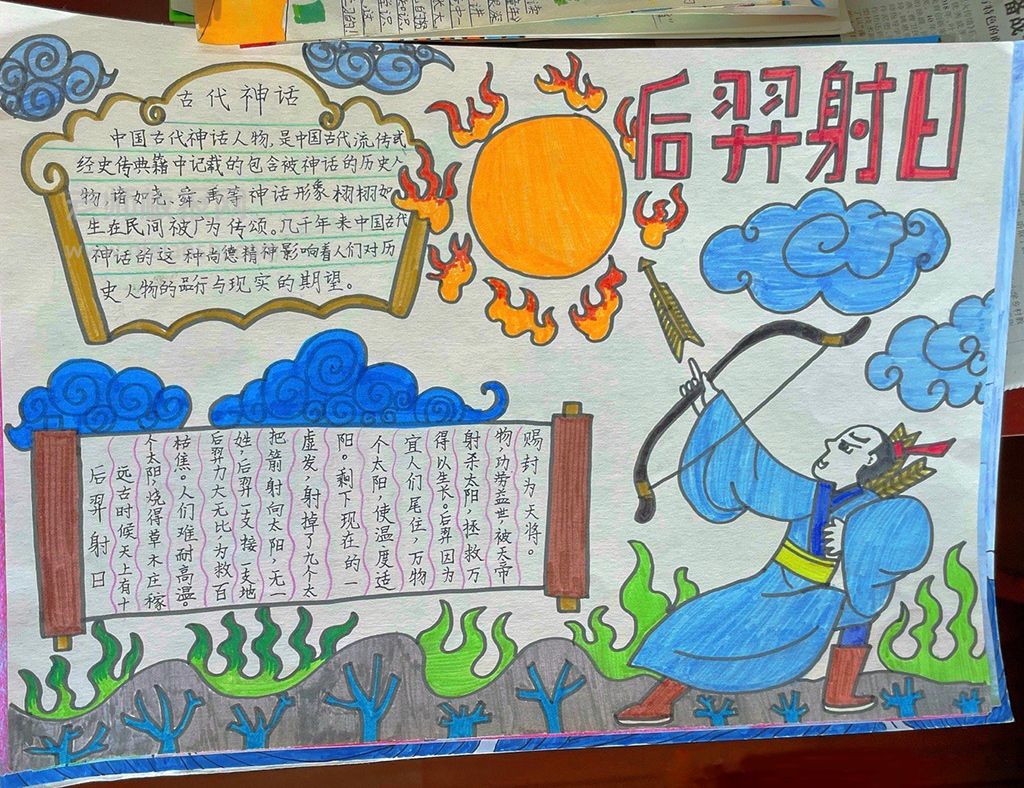 后羿射日
古代神话
中国古代神话人物,是中国古代流传或
经史传典籍中记载的包含被神话的历史人
物,诸如尧、舜、禹等神话形象栩栩如
生在民间被广为传颂。几千年来中国古代
神话的这种尚德精神影响着人们对历
史人物的品行与现实的期望。
后羿射日
远古时候天上有十
个太阳,烧得草木庄稼
枯焦。人们难耐高温。
后羿力大无比,为救百
姓,后羿一支接一支地
把箭射向太阳,无一
虚发,射掉了九个太
阳。剩下现在的一
个太阳,使温度适
宜人们尾住,万物
得以生长。后羿因为
射杀太阳,拯救万
物,功劳盖世,被天帝
赐封为天将。